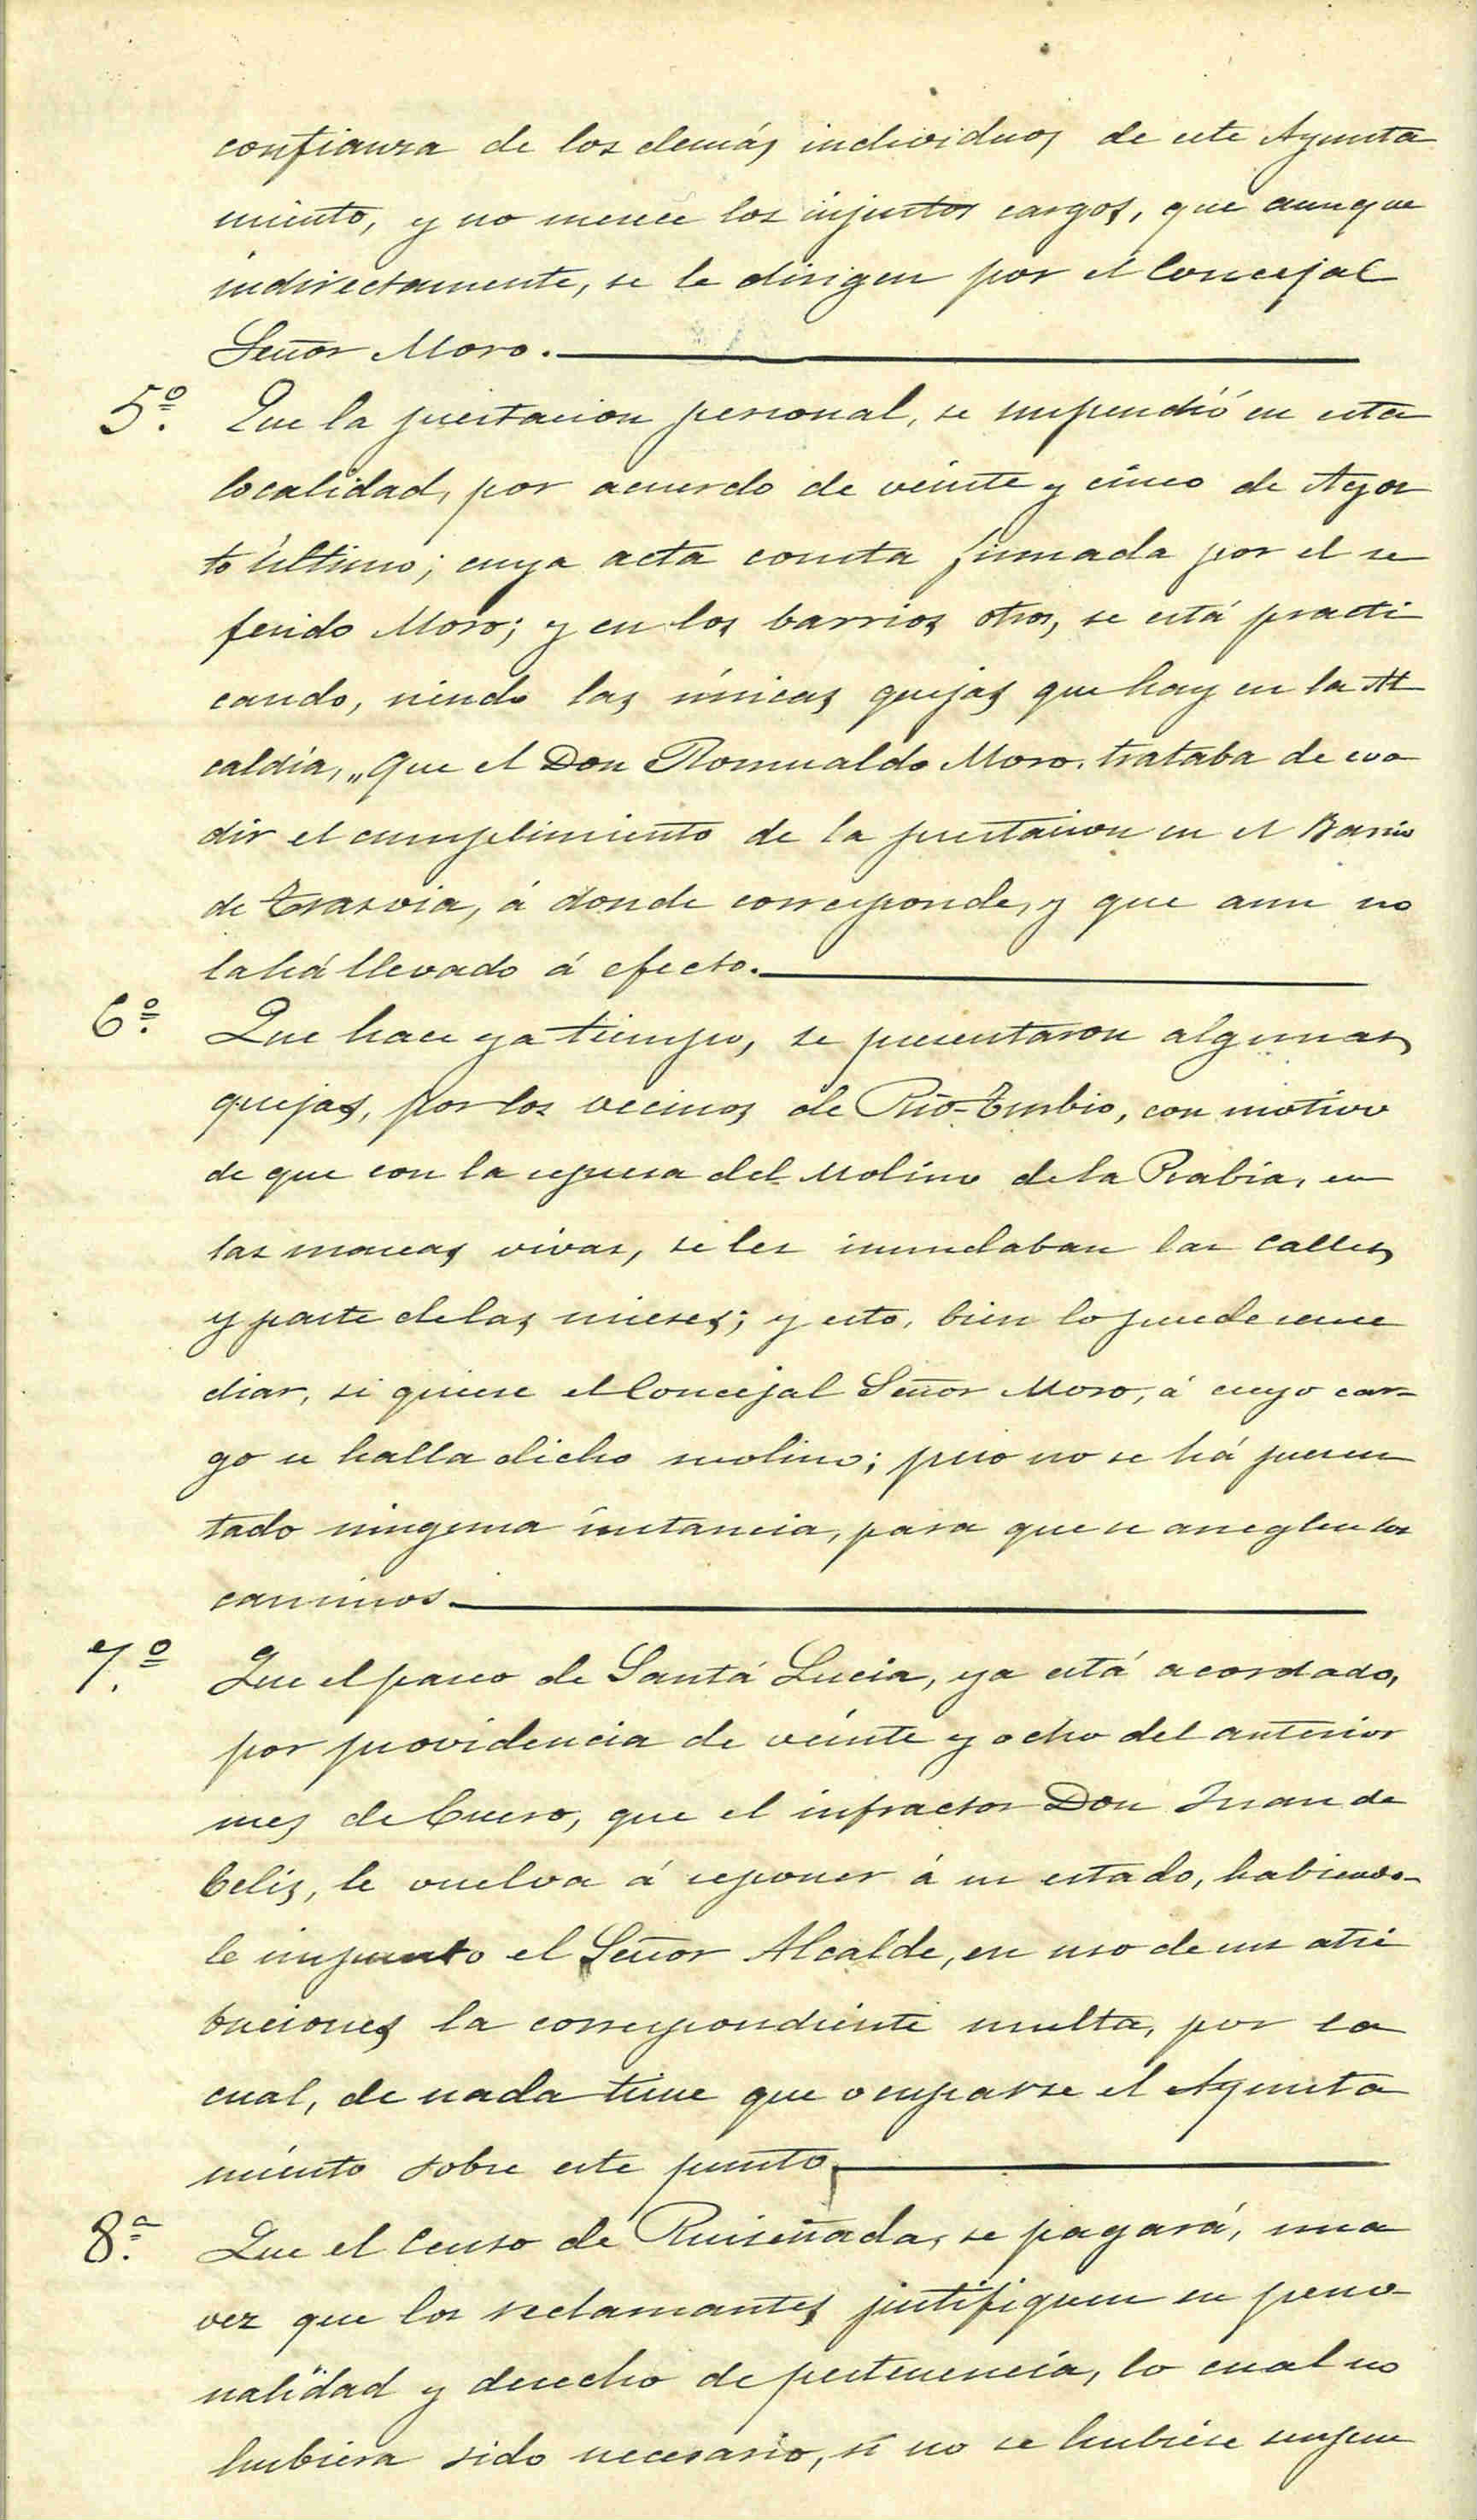 confianza de los demás individuos de este Ayunta
miento, y no merece los injustos cargos, que aunque
indirectamente, se le dirigen por el Concejal
Señor Moro.
5º. Que la prestacion personal, se suspendió en esta
localidad, por acuerdo de veinte y cinco de Agos
to último; cuya acta consta firmada por el re
ferido Moro; y en los barrios otros, se está practi
cando, siendo las únicas quejas que hay en la Al
caldía, „ que el Don Romualdo Moro, trataba de eva
dir el cumplimiento de la prestacion en el Barrio
de Trasvia, á donde corresponde, y que aun no
la há llevado á efecto.
6º. Que hace ya tiempo, se presentaron algunas
quejas, por los vecinos de Rio-Turbio, con motivo
de que con la represa del Molino de la Rabia, en
las mareas vivas, se les inundaban las calles
y parte de las mieses; y esto, bien lo puede reme
diar, si quiere el Concejal Señor Moro, á cuyo car-
go se halla dicho molino; pero no se há presen
tado ninguna instancia, para que se arreglen los
caminos.
7.º Que el paseo de Santa Lucia, ya está acordado,
por providencia de veinte y ocho del anterior
mes de Enero, que el infractor Don Juan de
Celis, le vuelva á reponer á su estado, habiendo-
le impuesto el Señor Alcalde, en uso de sus atri
buciones la correspondiente multa, por lo
cual, de nada tiene que ocuparse el Ayunta
miento sobre este punto.
8.ª Que el Censo de Ruiseñada, se pagará, una
vez que los reclamantes justifiquen su perso-
nalidad y derecho de pertenencia, lo cual no
hubiera sido necesario, si no se hubiese suspen